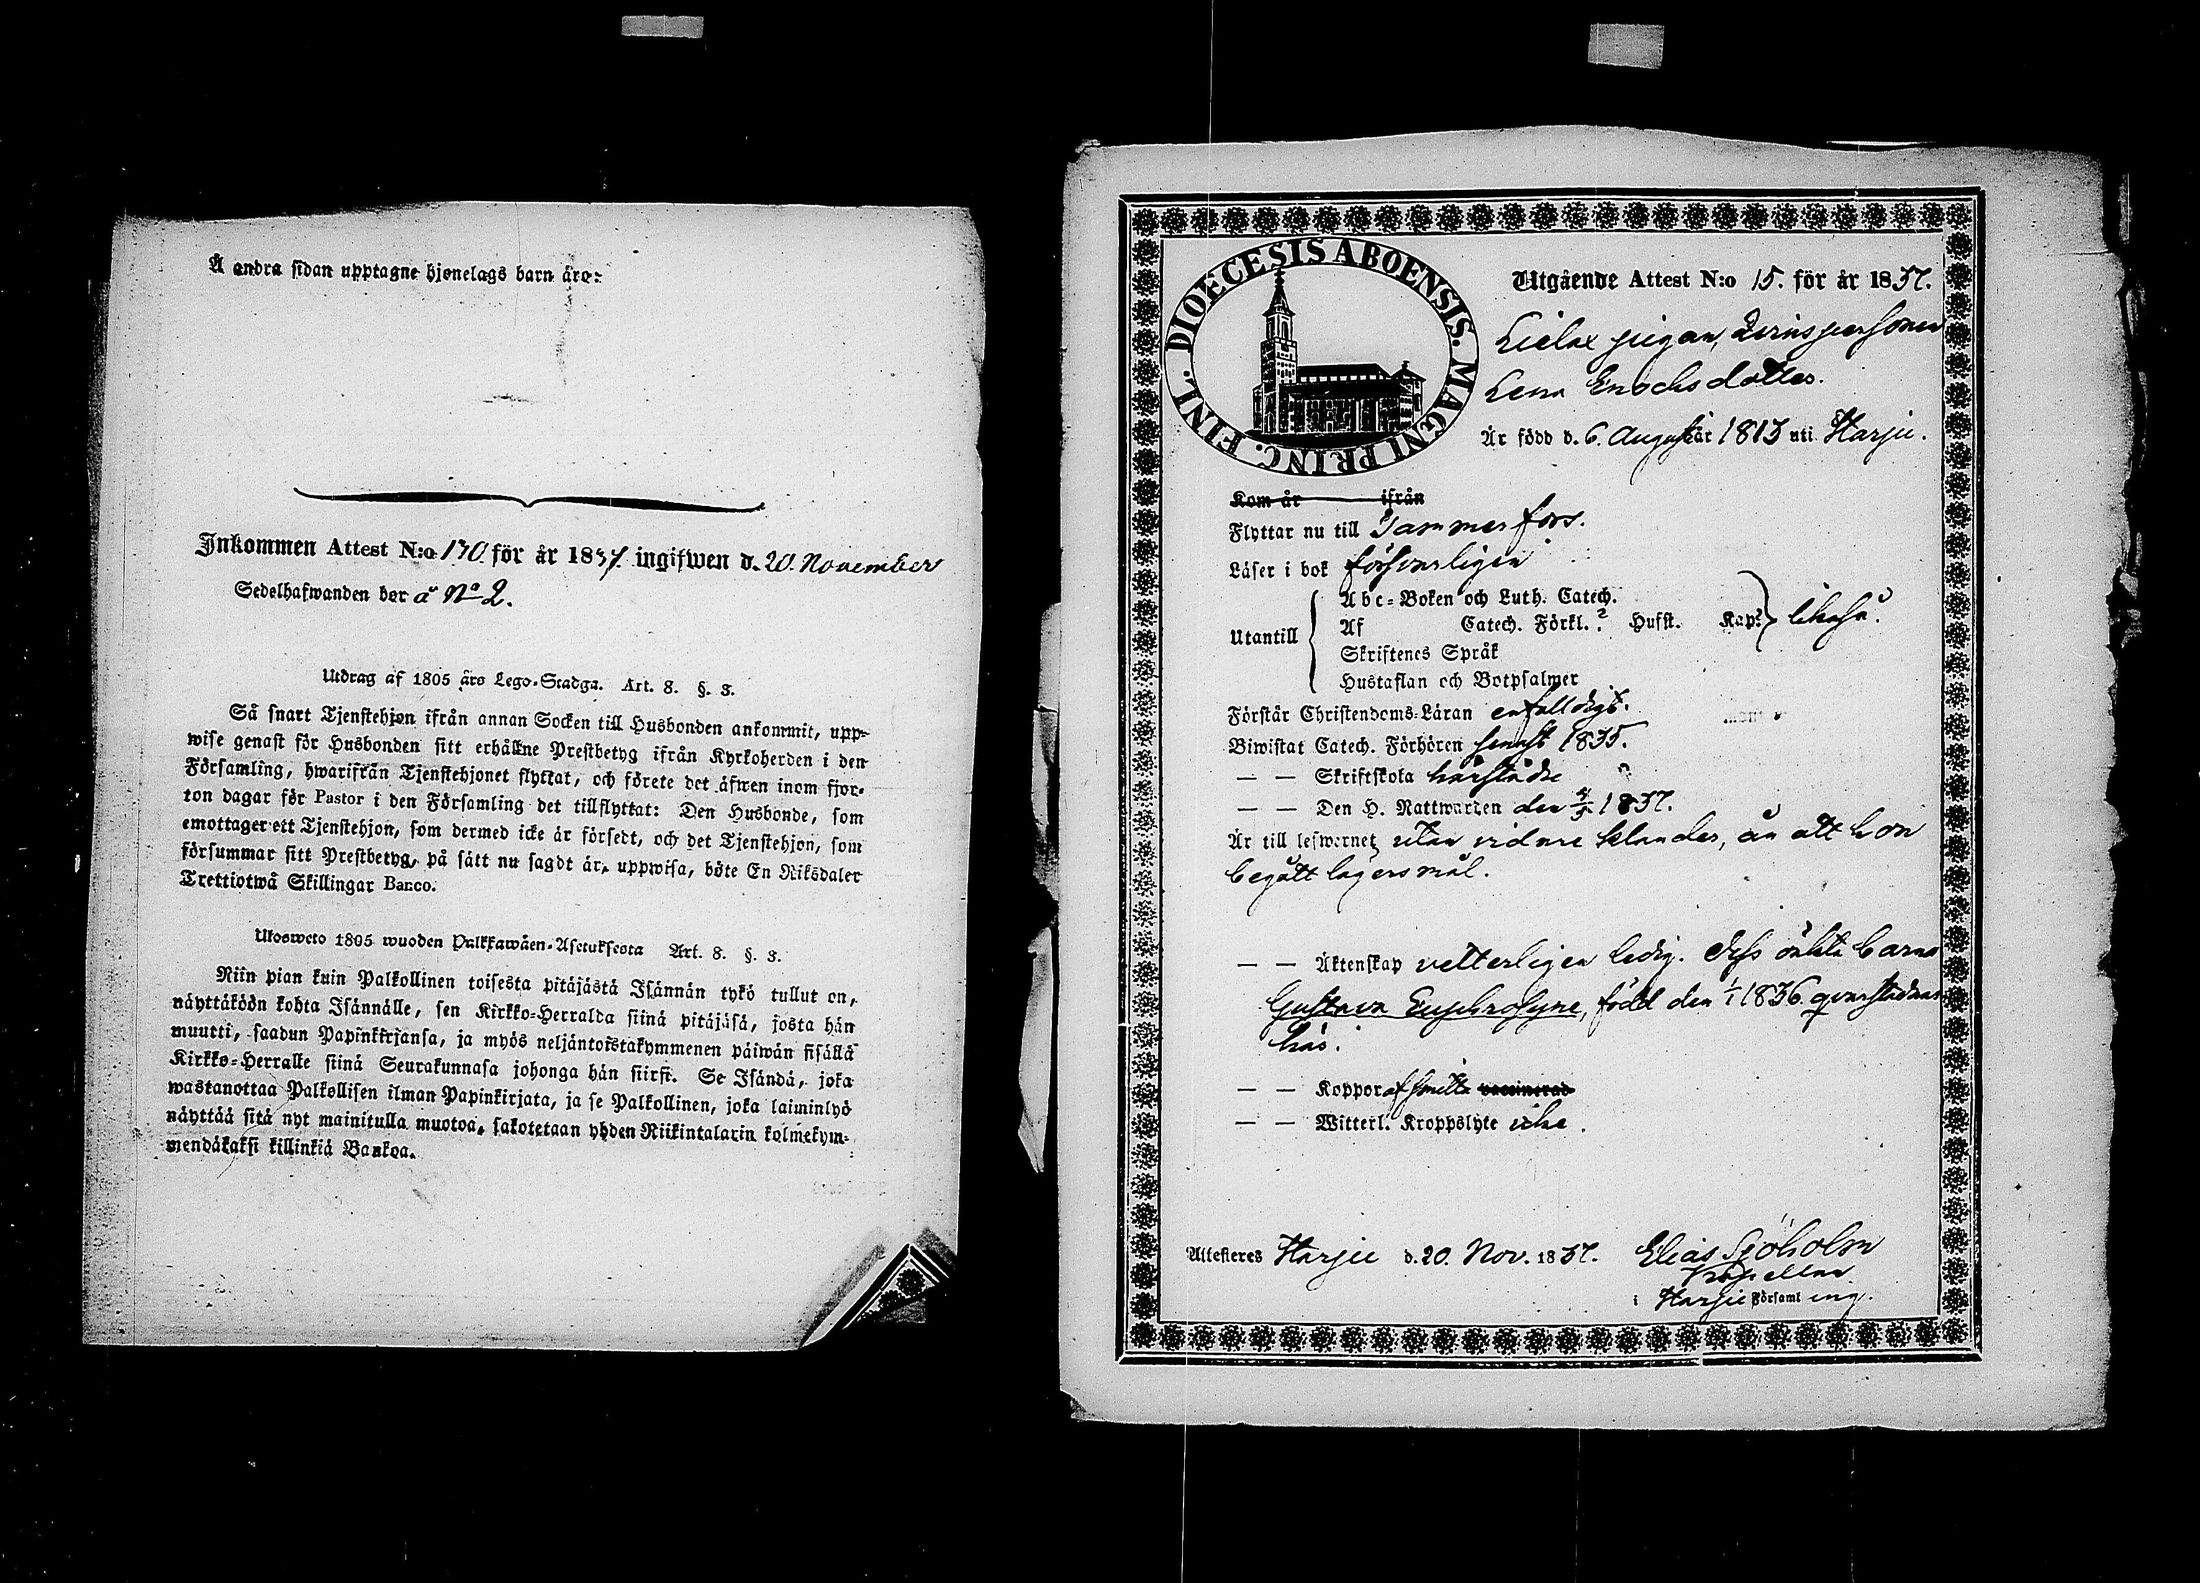 Å andra sidan upptagne hjonelags barn äro:
Inkommen Attest N:o 130. för år 1837 ingifwen d. 20. November
Sedelhafwanden bor å No 2.
Utdrag af 1805 års Lego-Stadga. Art. 8. §. 3.
Så snart Tjenstehjon ifrån annan Socken till Husbonden ankommit, upp-
wise genast för Husbonden sitt erhållne Prestbetyg ifrån Kyrkoherden i den
Församling, hwarifrån Tjenstehjonet flyttat, och förete det äfwen inom fjor-
ton dagar för Pastor i den Församling det tillflyttat: Den Husbonde, som
emottager ett Tjenstehjon, som dermed icke är försedt, och det Tjenstehjon, som
försummar sitt Prestbetyg, på sätt nu sagdt är, uppwisa, böte En Riksdaler
Trettiotwå Skillingar Banco.
Ulosweto 1805 wuoden Palkkawäen-Asetuksesta Art. 8. §. 3.
Niin pian kuin Palkollinen toisesta pitäjästä Isännän tykö tullut on,
näyttäköön kohta Isännälle, sen Kirkko-Herralda siinä pitäjäsä, josta hän
muutti, saadun Papinkirjansa, ja myös neljäntoistakymmenen päiwän sisällä
Kirkko-Herralle siinä Seurakunnasa johonga hän siirsi. Se Isändä, joka
wastanottaa Palkollisen ilman Papinkirjata, ja se Palkollinen, joka laiminlyö
näyttää sitä nyt mainitulla muotoa, sakotetaan yhden Riikintalarin kolmekym-
mendäkaksi killinkiä Bankoa.
DIOECESIS ABOENSIS. MAGNI PRINC. FINL.
Utgående Attest N:o 15. för år 1837.
pigan, Qvinspersonen
Lena Enochsdotter.
Är född d. 6. Augusti år 1813 uti Harju.
Kom år ifrån
Flyttar nu till Tammerfors.
Läser i bok försvarligen
Utantill
Abc-Boken och Luth. Catech.
Af Catech. Förkl.? Husst. Kap? likaså.
Skriftenes Språk
Hustaflan och Botpsalmer
Förstår Christendoms-Läran enfaldigt.
Biwistat Catech. Förhören senast 1835.
— — Skriftskola härstädes
— — Den H. Nattwarden den 1837.
Är till lefwernet utan vidare klander, än att hon
begått lägersmål.
— — Äktenskap vetterligen ledig. Dess oäkta barn
Gustava Euphrosyne, född den 1/1 1836. qvarstadnar
här.
— — Koppor af smitta vaccinerad
— — Witterl. Kroppslyte icke.
Attesteres Harju d. 20. Nov. 1837. Elias Sjöholm
Kapellan
i Harju Församling.